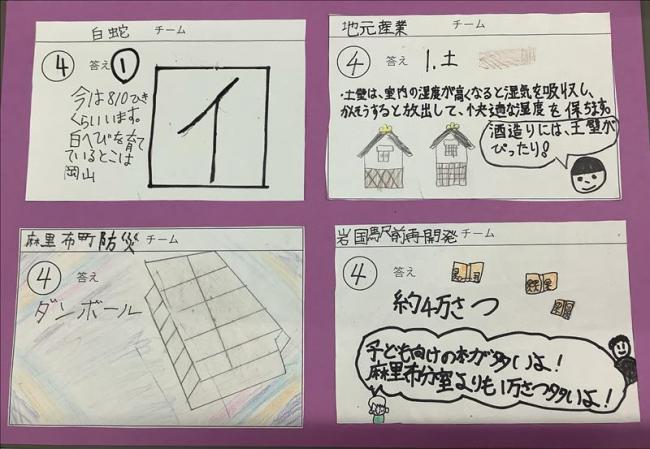 白蛇 チーム
④ 答え ①
イ
今は810ぴき
くらいいます。
白へびを育て
ているとこは
岡山
地元産業 チーム
④ 答え 1.土
・土壁は、室内の湿度が高くなると湿気を吸収し、
かんそうすると放出して、快適な湿度を保ちます。
酒造りには、土壁が
ぴったり!
麻里布町防災 チーム
④ 答え
ダンボール
岩国駅前再開発 チーム
④ 答え
約4万さつ
子ども向けの本が多いよ!
麻里布分室よりも1万さつ多いよ!